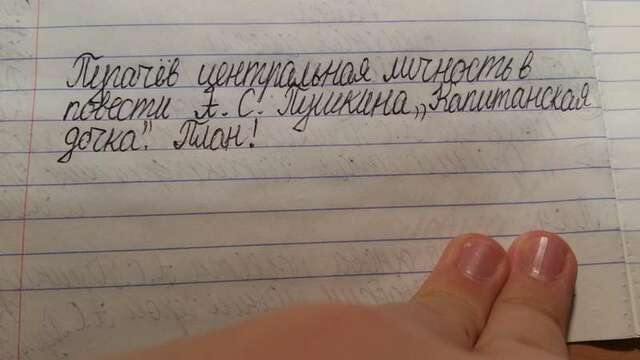 Пугачёв центральная личность в
повести А. С. Пушкина „Капитанская
дочка". План!